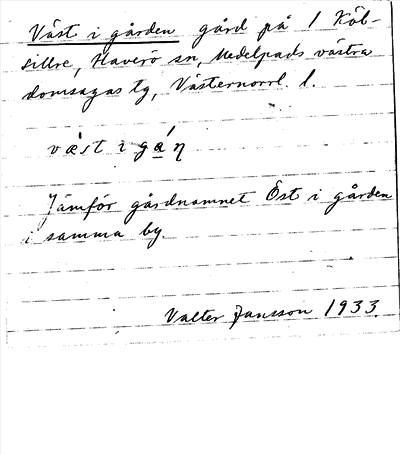 Väst i gården gård på 1 Köl-
sillre, Haverö sn, Medelpads västra
domsagas tg, Västernorrl. l.
væ̀st i gáη
Jämför gårdnamnet Öst i gården
i samma by.
Valter Jansson 1933.